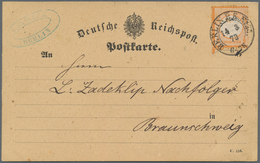 Deutsche Reichspost.
Postkarte.
An
Herrn
L. Zadeklip Nachfolger
in
Braunschweig